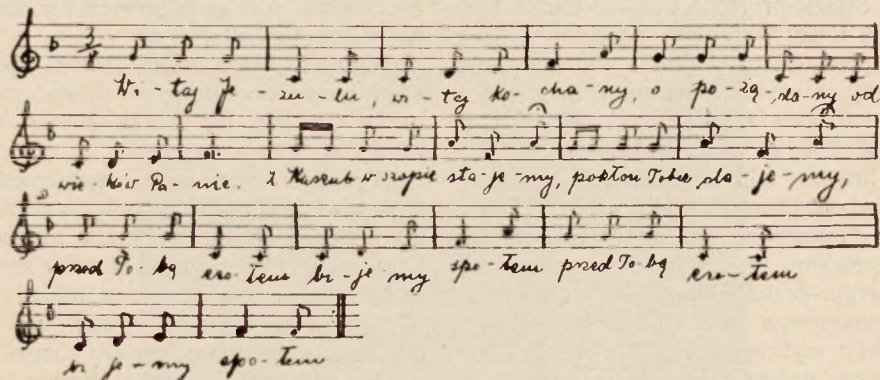 3/8
Wi-taj Je-zu-lu, wi-taj ko-cha-ny, o po-żą-da-ny od
wie-ków Pa-nie. Z Kaszub w szopie sta-je-my, pokłon Tobie da-je-my,
przed To-bą czo-łem bi-je-my spo-łem przed To-bą czo-łem
bi-je-my spo-łem